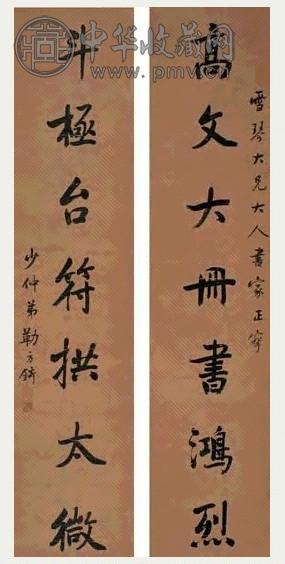 高文大冊書鴻烈
雪琴大兄大人書家正字
斗極台符拱太微
少仲弟勒方錡
中华收藏网
www.pmv.cn